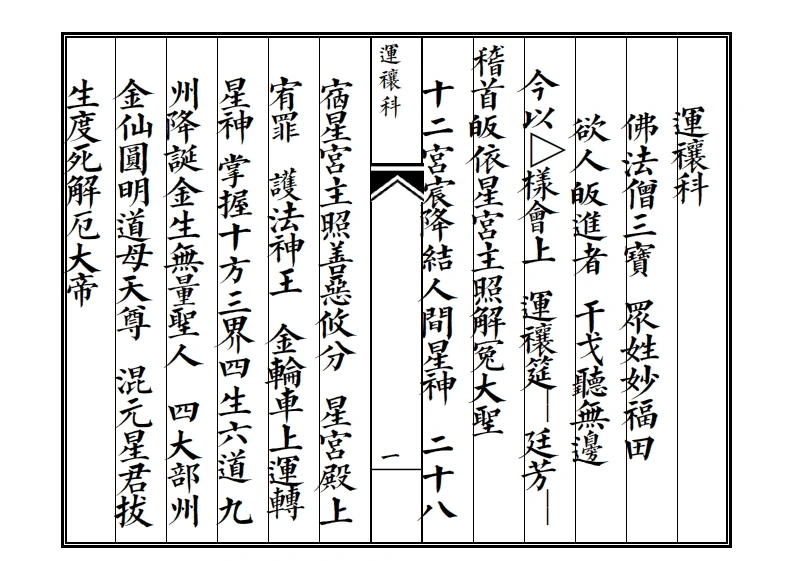 運禳科
佛法僧三寶 眾姓妙福田
欲人皈進者 干戈聽無邊
今以▷樣會上 運禳筵—廷芳—
稽首皈依星宮主照解冤大聖
十二宮宸降結人間星神 二十八
運禳科
一
宿星宮主照善惡攸分 星宮殿上
宥罪 護法神王 金輪車上運轉
星神 掌握十方三界四生六道 九
州降誕金生無量聖人 四大部州
金仙圓明道母天尊 混元星君拔
生度死解厄大帝